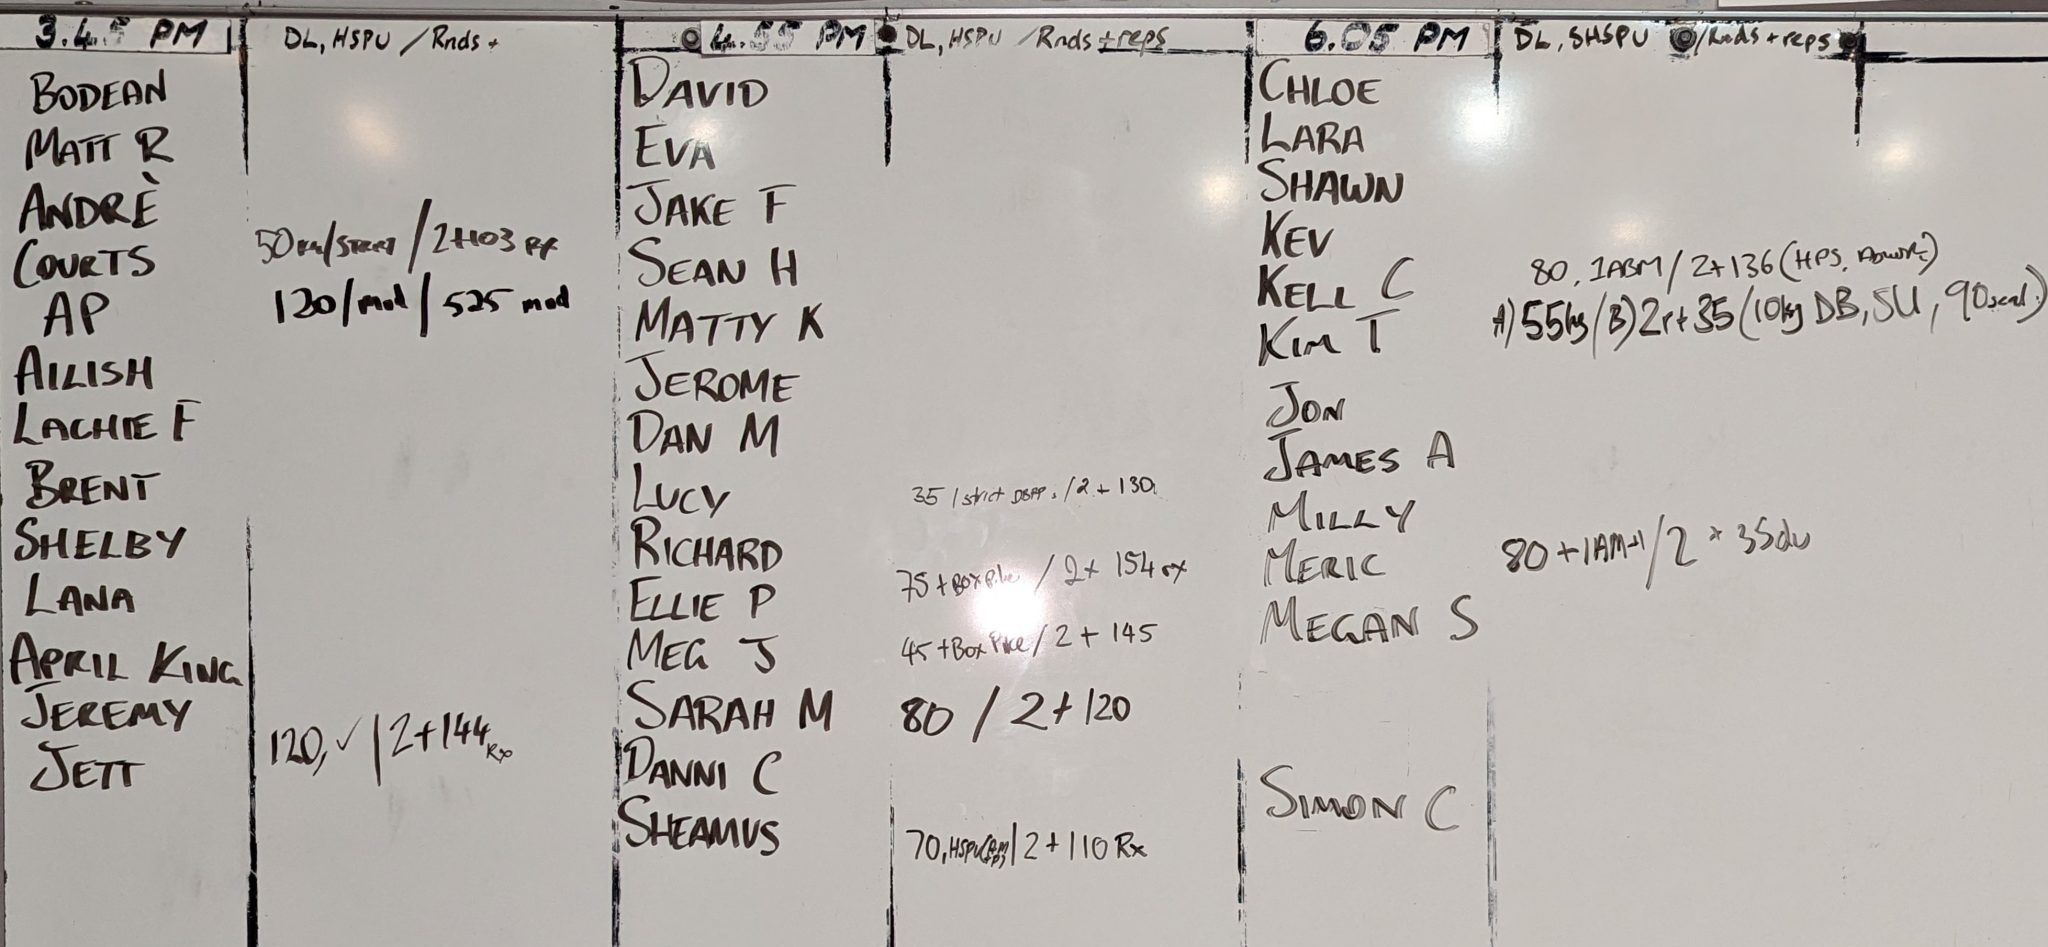 3.45 PM DL, HSPU / Rnds +
BODEAN
MATT R
ANDRÈ
COURTS 50 / 2+103 Rx
AP 120/mod / 525 mod
AILISH
LACHIE F
BRENT
SHELBY
LANA
APRIL KING
JEREMY
JETT 120, ✓ / 2+144 Rx
4.55 PM DL, HSPU / Rnds + reps
DAVID
EVA
JAKE F
SEAN H
MATTY K
JEROME
DAN M
LUCY 35 / strict / 2 + 130
RICHARD
ELLIE P 75 + Box Pike / 2+ 154 rx
MEG J 45 + Box Pike / 2 + 145
SARAH M 80 / 2+120
DANNI C
SHEAMUS 70, HSPU / 2+110 Rx
6.05 PM DL, SHSPU /Rnds + reps
CHLOE
LARA
SHAWN
KEV
KELL C 80, 1ABM / 2+136 (HPS,
KIM T A) 55kg / B) 2r+35 (10kg DB, SU, 90
JON
JAMES A
MILLY
MERIC 80 + 1AM+1 / 2 + 35du
MEGAN S
SIMON C